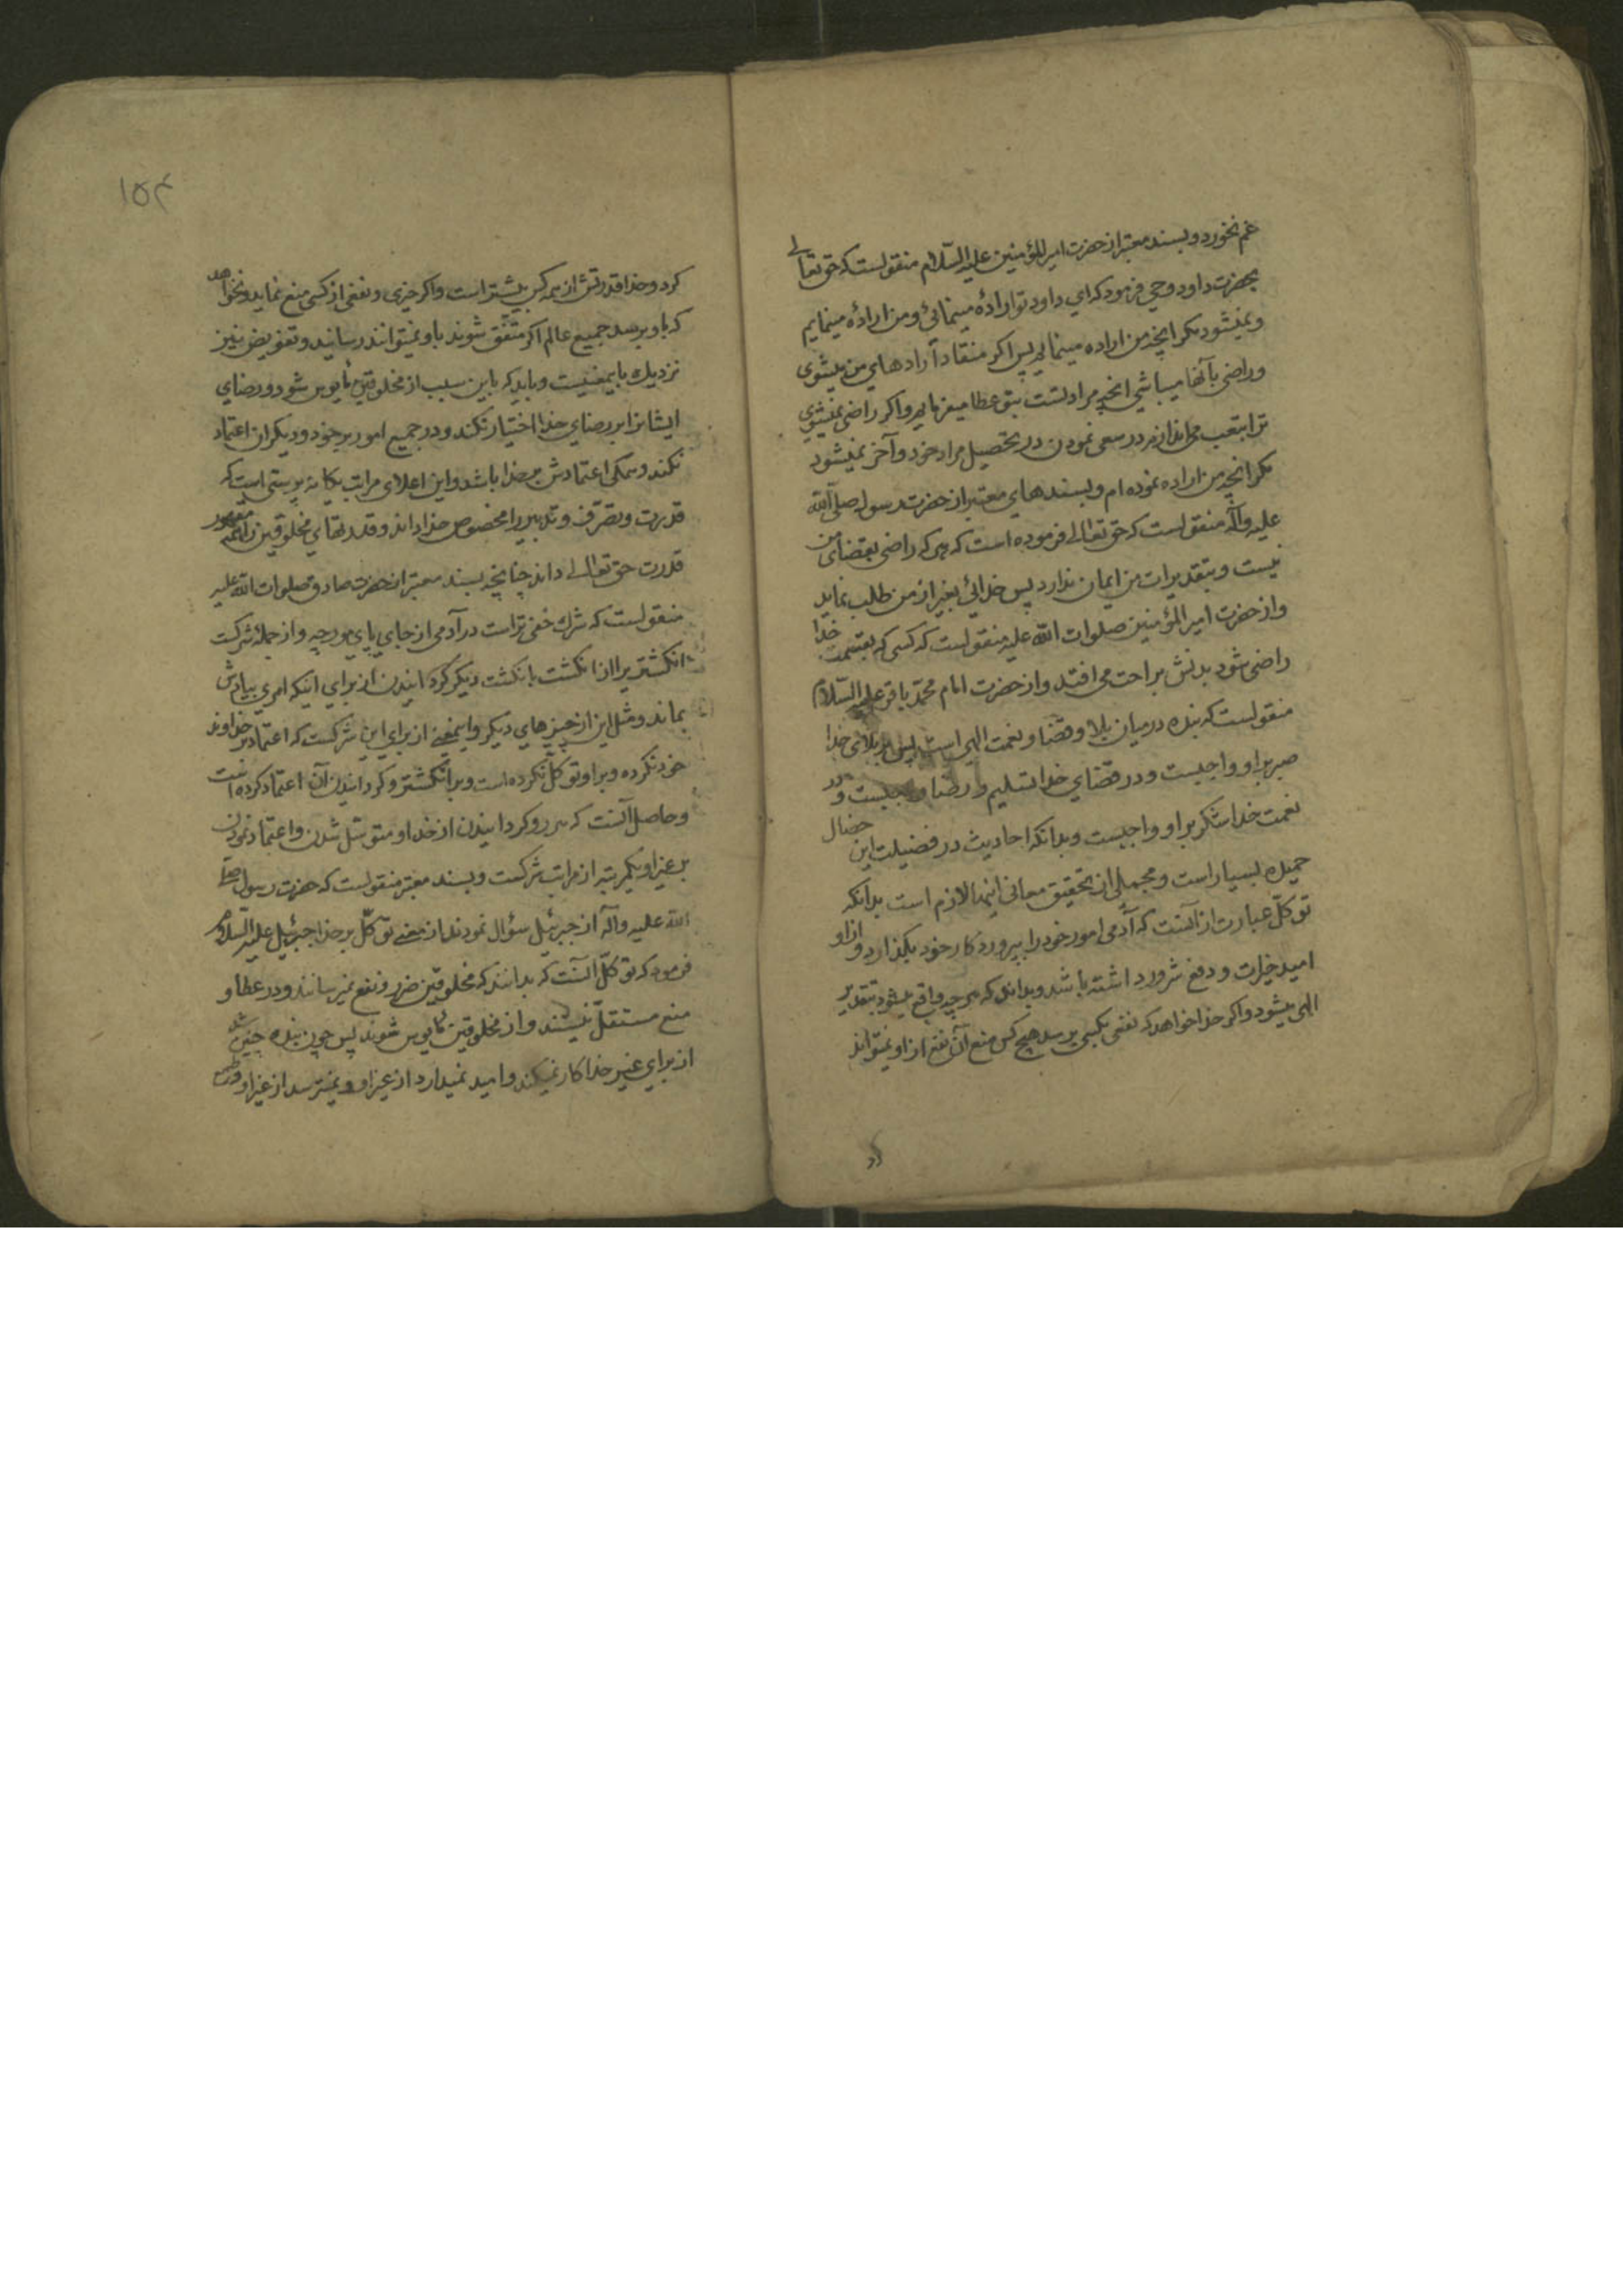 غم نخورد و بسند معتبر از حضرت امیر المؤمنین علیه السّلام منقولست که حق تعالی
بحضرت داود وحی فرمود که ای داود تو ارادهٔ مینمائی و من ارادهٔ مینمایم
و نمیشود مکر آنچه من اراده مینمایم پس اکر منقاد آرادهای من میشوی
و راضی بآنها میباشی آنچه مراد تست بتو عطا میفرمایم و اکر راضی نمیشوی
ترا بتعب می اندازم در سعی نمودن در تحصیل مراد خود و آخر نمیشود
مکر آنچه من اراده نموده ام و بسندهای معتبر از حضرت رسول صلی الله
علیه و آله منقولست که حق تعالی فرموده است که هر که راضی بقضای من
نیست و بتقدیرات من ایمان ندارد پس خدائی بغیر از من طلب نماید
و از حضرت امیر المؤمنین صلوات الله علیه منقولست که کسی که بقسمت خدا
راضی شود بدنش براحت می افتد و از حضرت امام محمّد باقر علیه السّلام
منقولست که بنده در میان بلا و قضا و نعمت الهی است پس در بلای خدا
صبر بر او واجبست و در قضای خدا تسلیم و رضا واجبست و در
نعمت خدا شکر بر او واجبست و بدانکه احادیث در فضیلت این خصال
حمیده بسیار است و مجملی از تحقیق معانی اینها لازم است بدانکه
توکّل عبارت از آنست که آدمی امور خود را بپروردکار خود بکذارد و از او
امید خیرات و دفع شرور داشته باشد و بداند که هر چه واقع میشود بتقدیر
الهی میشود و اکر خدا خواهد که نفعی بکسی برسد هیچ کس منع آن نفع از او نمیتواند
۱۵۴
کرد و خدا قدرتش از همه کس بیشتر است و اکر خیری و نفعی از کسی منع نماید و نخواهد
که باو برسد جمیع عالم اکر متّفق شوند باو نمیتوانند رسانید و تفویض نیز
نزدیك باینمعنیست و باید که باین سبب از مخلوقین مأیوس شود و رضای
ایشانرا بر رضای خدا اختیار نکند و در جمیع امور بر خود و دیکران اعتماد
نکند و همکی اعتمادش بر خدا باشد و این اعلای مراتب یکانه پرستی است که
قدرت و تصرّف و تدبیر را مخصوص خدا داند و قدرتهای مخلوقین را مقهور
قدرت حق تعالی داند چنانچه بسند معتبر از حضرت صادق صلوات الله علیه
منقولست که شرك خفی تر است در آدمی از جای پای مورچه و از جملهٔ شرکست
انکشتریرا از انکشت بانکشت دیکر کردانیدن از برای اینکه امری بیادش
بماند و مثل این از چیزهای دیکر و اینمعنی از برای این شرکست که اعتماد بر خداوند
خود نکرده و بر او توکّل نکرده است و بر انکشتر و کردانیدن آن اعتماد کرده است
و حاصل آنست که هر رو کردانیدن از خدا و متوسّل شدن و اعتماد نمودن
بر غیر او یکمرتبه از مراتب شرکست و بسند معتبر منقولست که حضرت رسول صلی
الله علیه و آله از جبرئیل سؤال نمودند از معنی توکّل بر خدا جبرئیل علیه السّلام
فرمود که توکّل آنست که بدانند که مخلوقین ضرر و نفع نمیرسانند و در عطا و
منع مستقلّ نیستند و از مخلوقین مأیوس شوند پس چون بنده چنین شد
از برای غیر خدا کار نمیکند و امید نمیدارد از غیر او و نمیترسد از غیر او و طمع